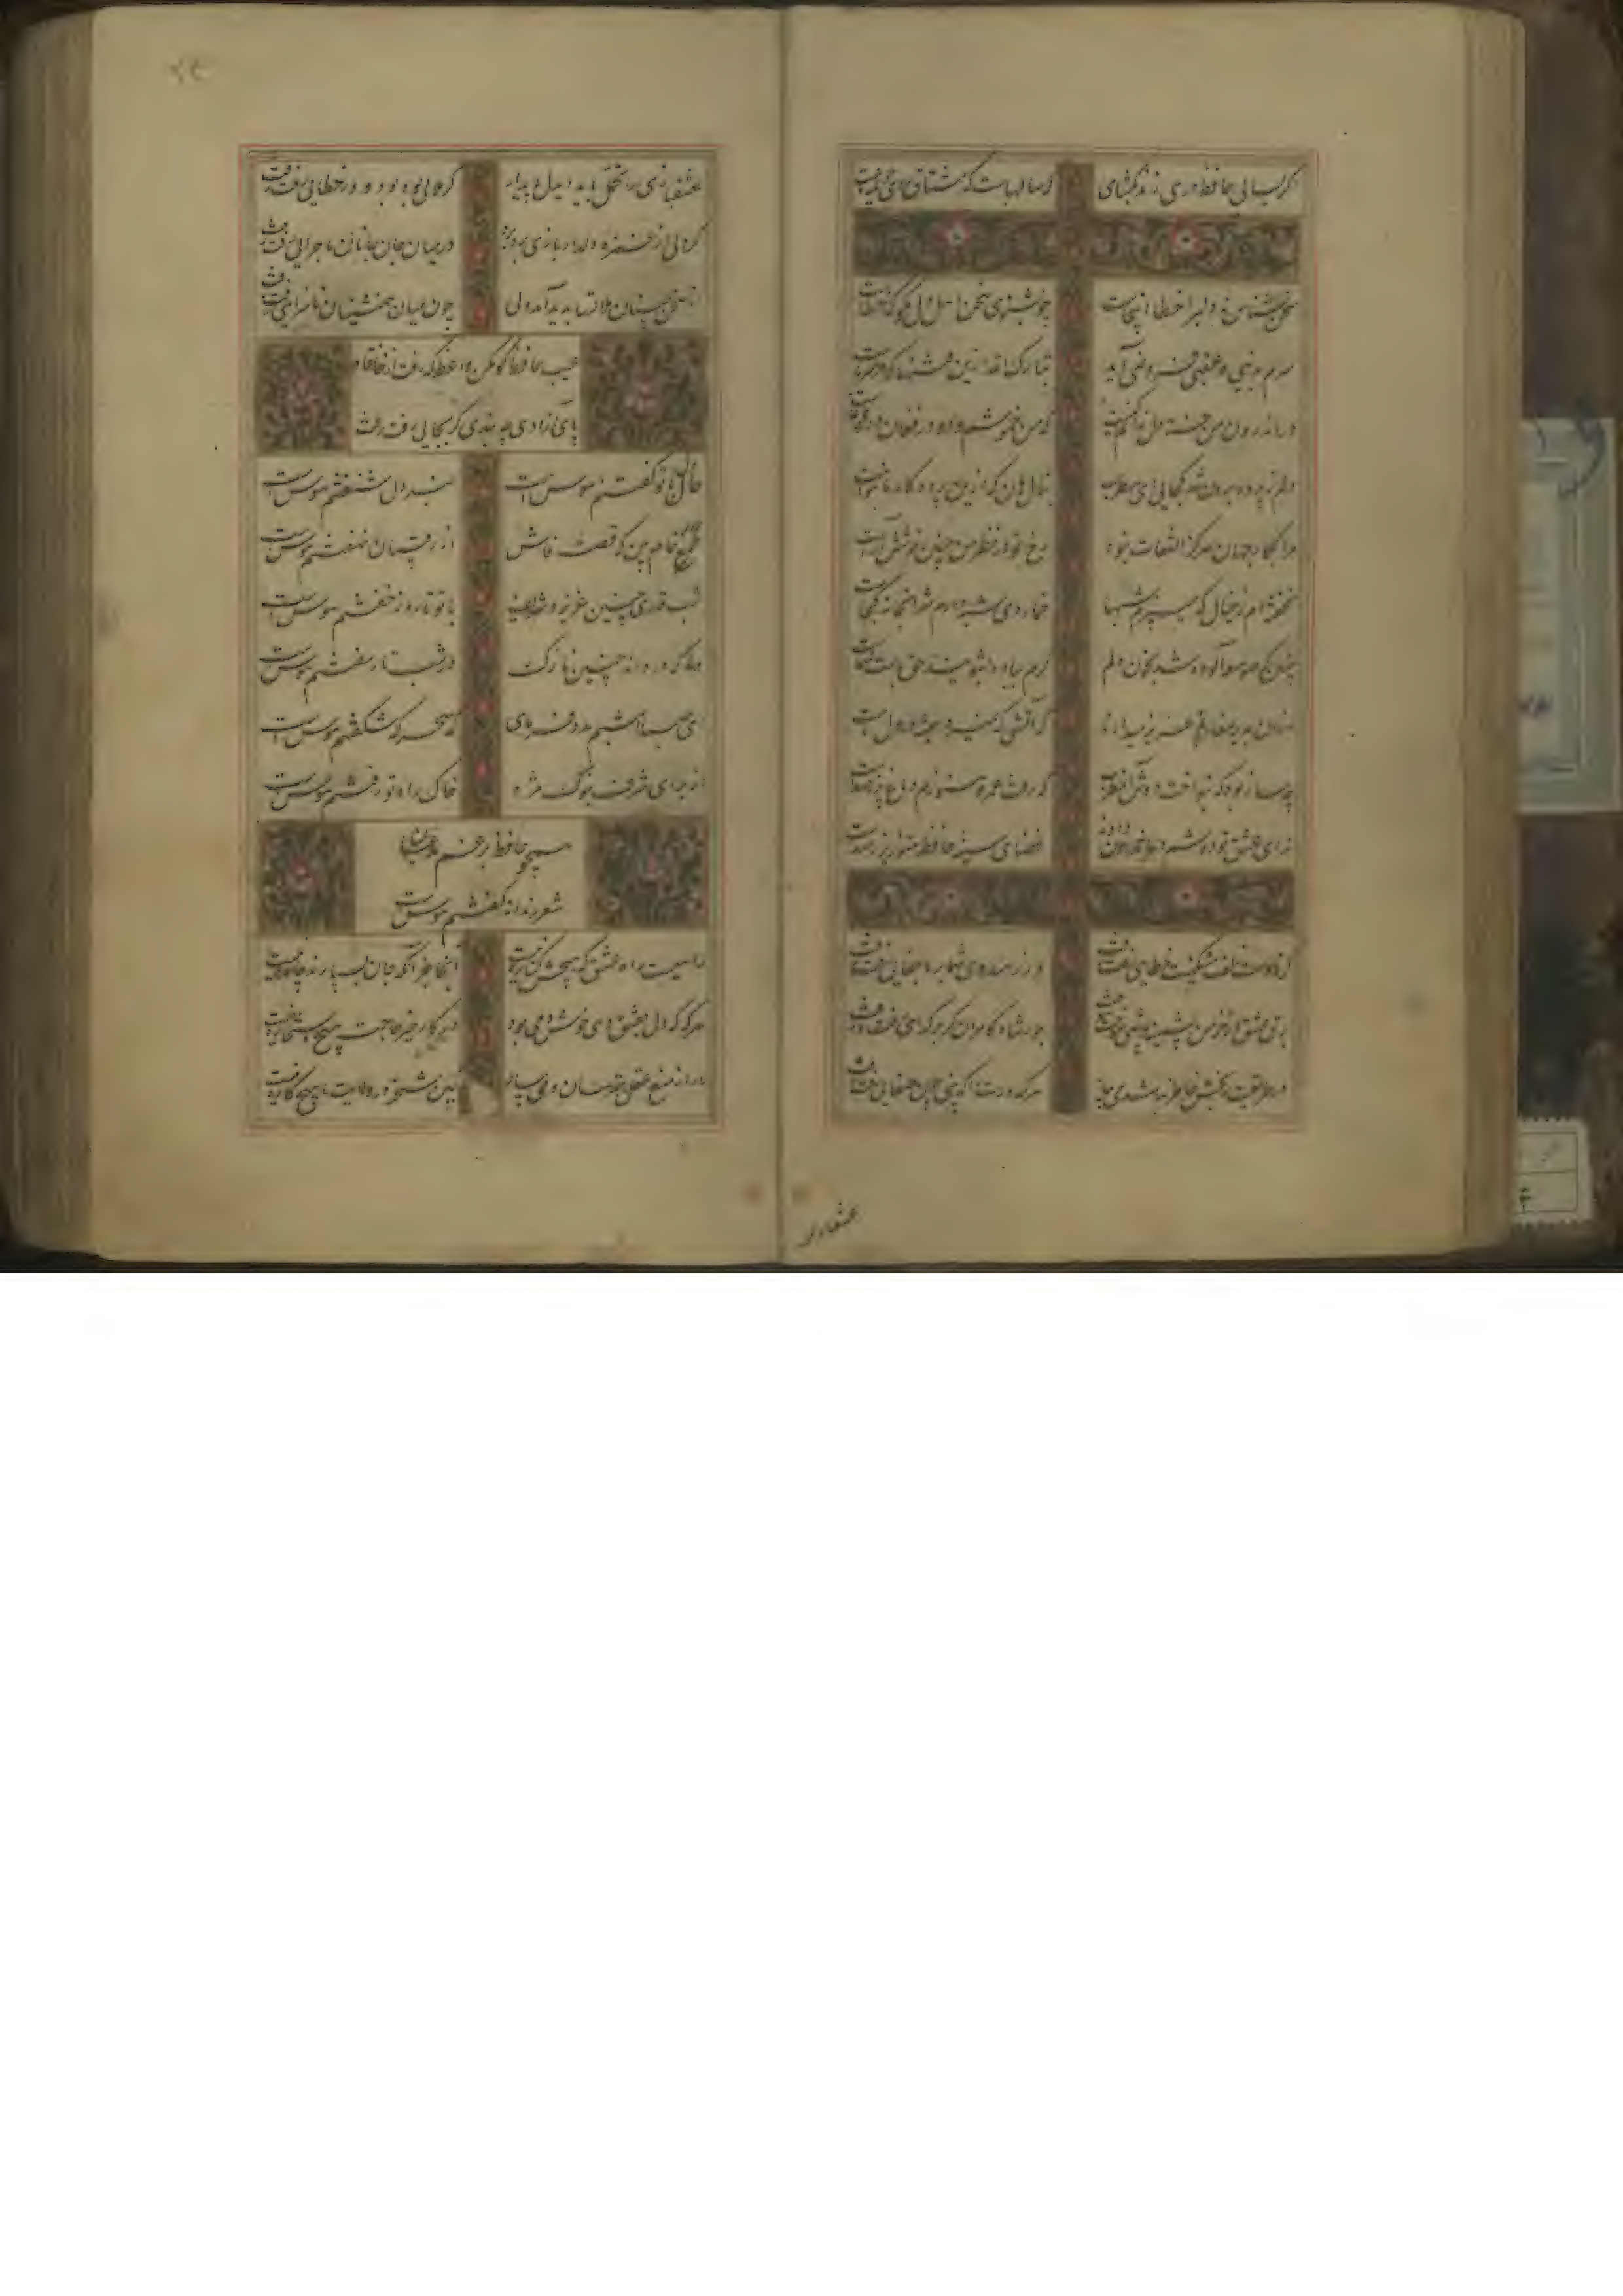 که سالهاست که مشتاق
چو بشنوی سخن اهل دل مگو که خطاست
سرم بدنیی و عقبی فرو نمی آید
تبارک الله ازین فتنها که در سر ماست
در اندرون من خسته دل ندانم کیست
که من خموشم و او در فغان و در غوغاست
دلم ز پرده برون شد کجایی ای مطرب
بنال هان که ازین پرده کار ما بنواست
مرا بکار جهان هرگز التفات نبود
رخ تو در نظر من چنین خوشش آراست
نخفته ام ز خیال که می پزم شبها
خمار دی شبه دارم شرابخانه کجاست
چنین که صومعه آلوده شد بخون دلم
گرم بباده بشویید حق بدست شماست
از آن بدیر مغانم عزیز میدارند
که آتشی که نمیرد همیشه در دل ماست
چه ساز بود که بنواخت دوش آن مطرب
که رفت عمر و هنوزم دماغ پر ز هواست
ندای عشق تو دوشم در اندرون دادند
فضای سینه حافظ هنوز پر ز صداست
گر ز دست زلف مشکینت خطایی رفت رفت
ور ز هندوی شما بر ما جفایی رفت رفت
برق عشق ار خرمن پشمینه پوشی سوخت سوخت
جور شاه کامران گر بر گدای رفت رفت
در طریقت رنجش خاطر نباشد می بیار
هر کدورت را که بینی چون صفایی رفت رفت
عشقبازی را تحمل باید ای دل پای دار
گر ملالی بود بود و ور خطایی رفت رفت
گر دلی از غمزه دلدار باری برد برد
در میان جان و جانان ماجرایی رفت رفت
از سخن چینان ملالتها پدید آمد ولی
چون میان همنشینان ناسزایی رفت رفت
عیب حافظ گو مکن واعظ که رفت از خانقاه
پای آزادی چه بندی گر بجایی رفت رفت
حال دل با تو گفتنم هوس است
خبر دل شنفتنم هوس است
طمع خام بین که قصه فاش
از رقیبان نهفتنم هوس است
شب قدری چنین عزیز و شریف
با تو تا روز خفتنم هوس است
وه که دردانه چنین نازک
در شب تار سفتنم هوس است
ای صبا امشبم مدد فرمای
که سحر گه شکفتنم هوس است
از برای شرف بنوک مژه
خاک راه تو رفتنم هوس است
همچو حافظ برغم مدعیان
شعر رندانه گفتنم هوس است
راهیست راه عشق که هیچش کناره نیست
آنجا جز آنکه جان بسپارند چاره نیست
هر گه که دل بعشق دهی خوش دمی بود
در کار خیر حاجت هیچ استخاره نیست
ما را ز منع عقل مترسان و می بیار
کین شحنه در ولایت ما هیچ کاره نیست